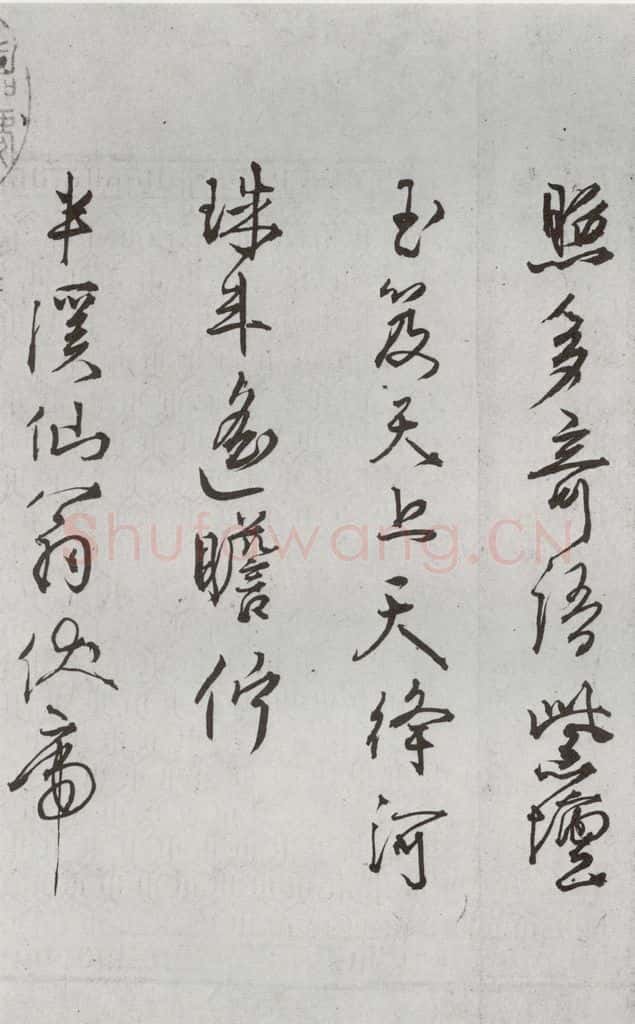 照多奇語紫壇
玉笈天上天絳河
珠斗遙瞻佇
半溪仙翁伏席
Shufawang.CN